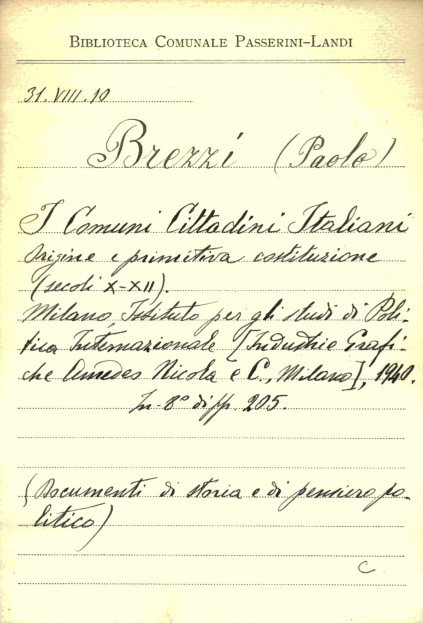 BIBLIOTECA COMUNALE PASSERINI-LANDI
31.VIII.10
Brezzi (Paolo)
I Comuni Cittadini Italiani
Origine e primitiva costituzione
(secoli X-XII).
Milano Istituto per gli studi di Poli-
tica Internazionale [Industrie Grafi-
che Amedeo Nicola e C., Milano], 1940.
In-8° di pp. 205.
(Documenti di storia e di pensiero po-
litico)
C